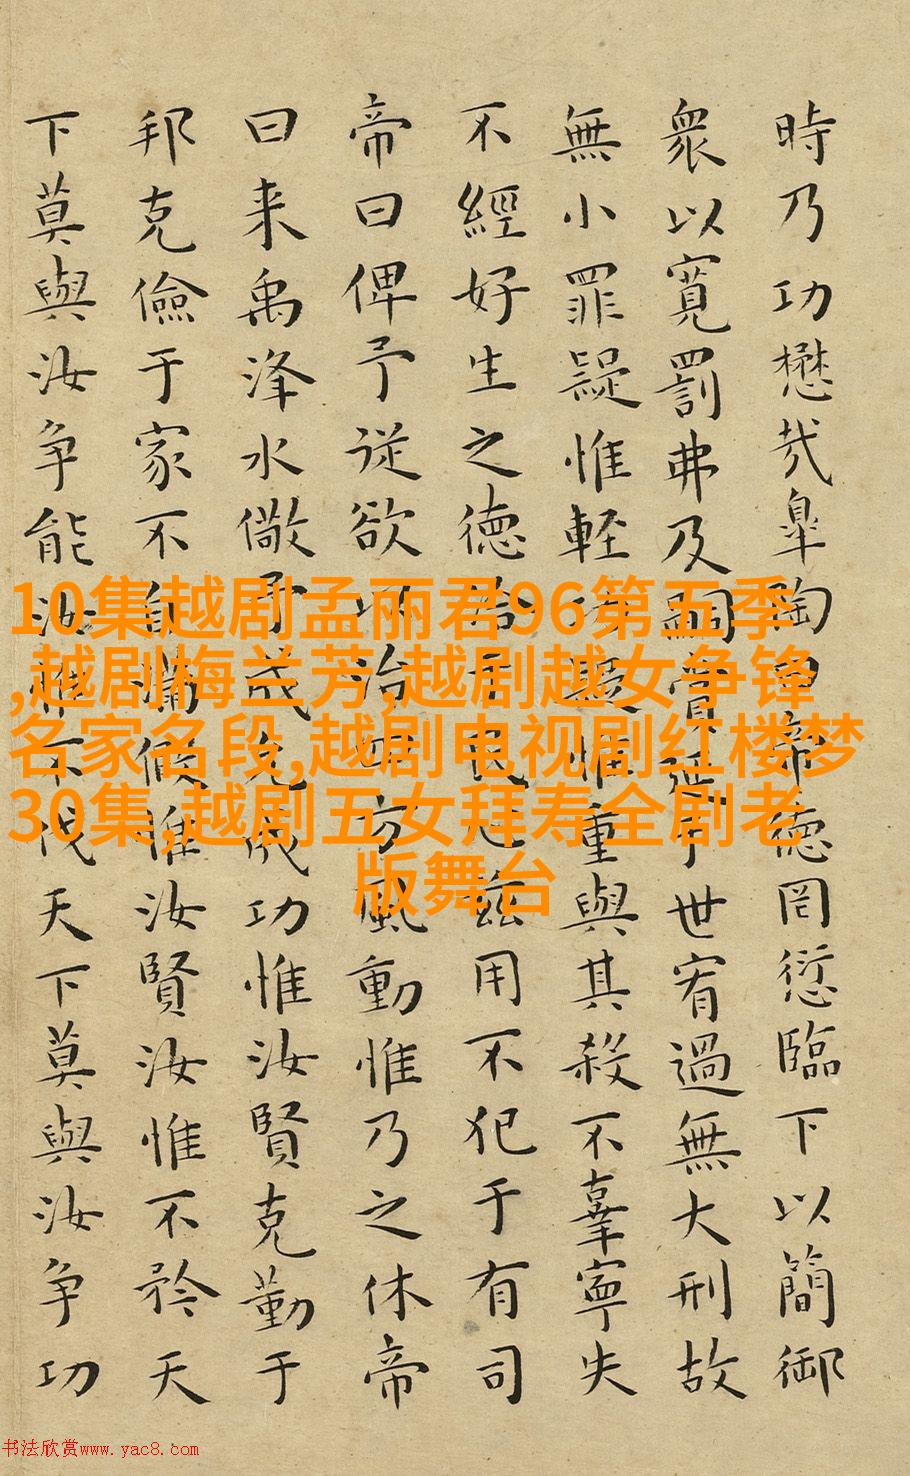 時乃功懋哉皐陶曰帝德罔愆臨下以簡御
衆以寛罰弗及嗣賞延于世宥過無大刑故
無小罪疑惟軽功疑惟重與其殺不辜寧失
不經好生之德洽于民心兹用不犯于有司
帝曰俾予従欲以治四方風動惟乃之休帝
曰来禹洚水儆予成允成功惟汝賢克勤于
邦克儉于家不自滿假惟汝賢汝惟不矜天
下莫與汝争能汝惟不伐天下莫與汝争功
10集越剧孟丽君96第五季
,越剧梅兰芳,越剧越女争锋
名家名段,越剧电视剧红楼梦
30集,越剧五女拜寿全剧老
版舞台
书法欣赏www.yac8.com